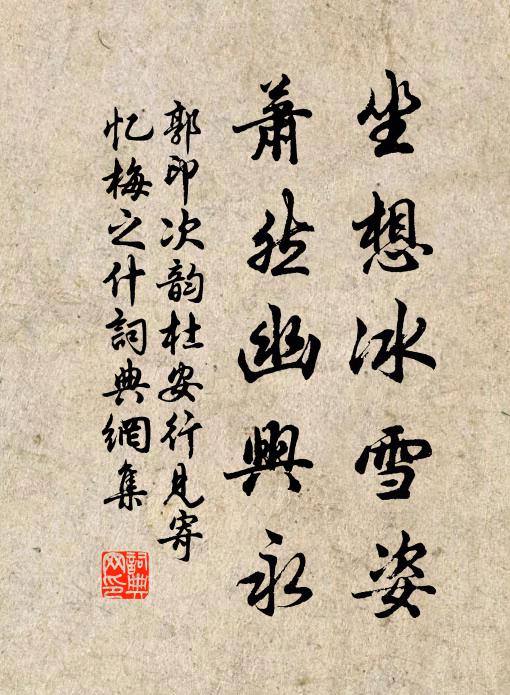 坐想冰雪姿
蕭然幽興永
郭印次韵杜安行見寄
忆梅之什詞典網集
詞典网印